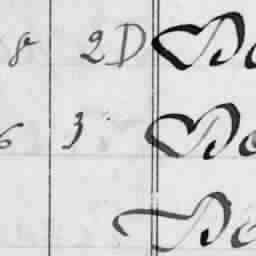 8 2D Do
6 3 Do
Do